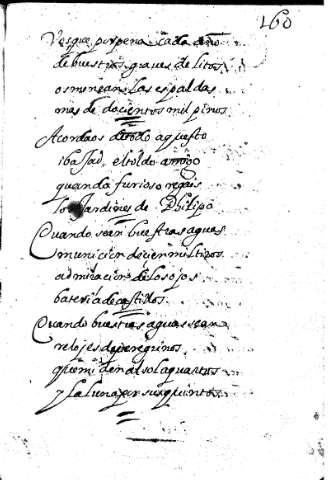 160
Vos que por pena cada año
de buestros graves delitos
os menean las espaldas
mas de docientos mil pinos
Acordaos de todo aquesto
i baJad el toldo amigo
quando furioso regais
los Jardines de Philipo
Quando sean buestras aguas
municion de cien mil tiros
admiracion de los ojos
bateria de castillos
Quando buestras aguas sean
relojes de peregrinos
que miden al sol a quartos
y la luna por sus quintos